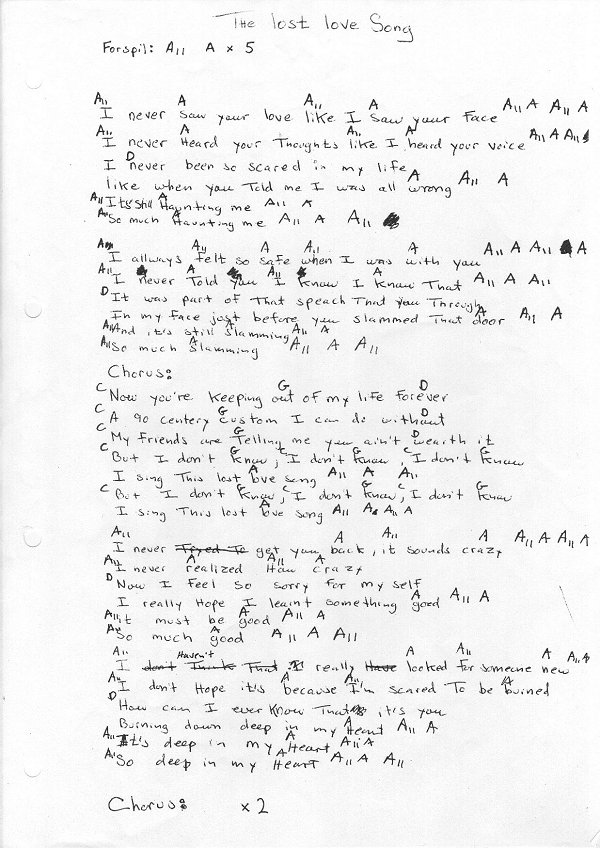 The lost love Song
Forspil: A11 A x 5
A11 A A11 A A11 A A11 A
I never saw your love like I saw your face
A11 A A11 A A11 A A11
I never Heard your Thoughts like I heard your voice
D
I never been so scared in my life
A A11 A
like when you Told me I was all wrong
A11 It's still Haunting me A11 A
A11 So much Haunting me A11 A A11
A11 A A11 A A11 A A11 A
I allways felt so safe when I was with you
A11 A A11 A A11 A A11
I never Told you I know I know That
D It was part of That speach That you Through
A A11 A
In my face just before you slammed That door
A11 And it's still slamming A11 A
A11 So much slamming A11 A A11
Chorus:
C G D
Now you're keeping out of my life forever
C G D
A 90 centery custom I can do without
C G D
My friends are Telling me you ain't wearth it
C G C G C G
But I don't know, I don't know, I don't know
A A11 A A11
I sing This lost love song
C G C G C G
But I don't know, I don't know, I don't know
A
I sing This lost love song A11 A A11 A
A11 A A11 A A11 A A11 A
I never Tryed To get you back, it sounds crazy
A11 A A11 A
I never realized How crazy
D Now I feel so sorry for my self
A A11 A
I really Hope I learnt something good
A11 it must be good A11 A
A11 So much good A11 A A11
A11 Haven't A A11 A A11 A
I don't Think That I really Have looked for someone new
A11 A A11 A
I don't Hope it's because I'm scared To be burned
D How can I ever know That it's you
Burning down deep in my Heart A11 A
A11 It's deep in my Heart A11 A
A11 So deep in my Heart A11 A A11
Chorus: x 2